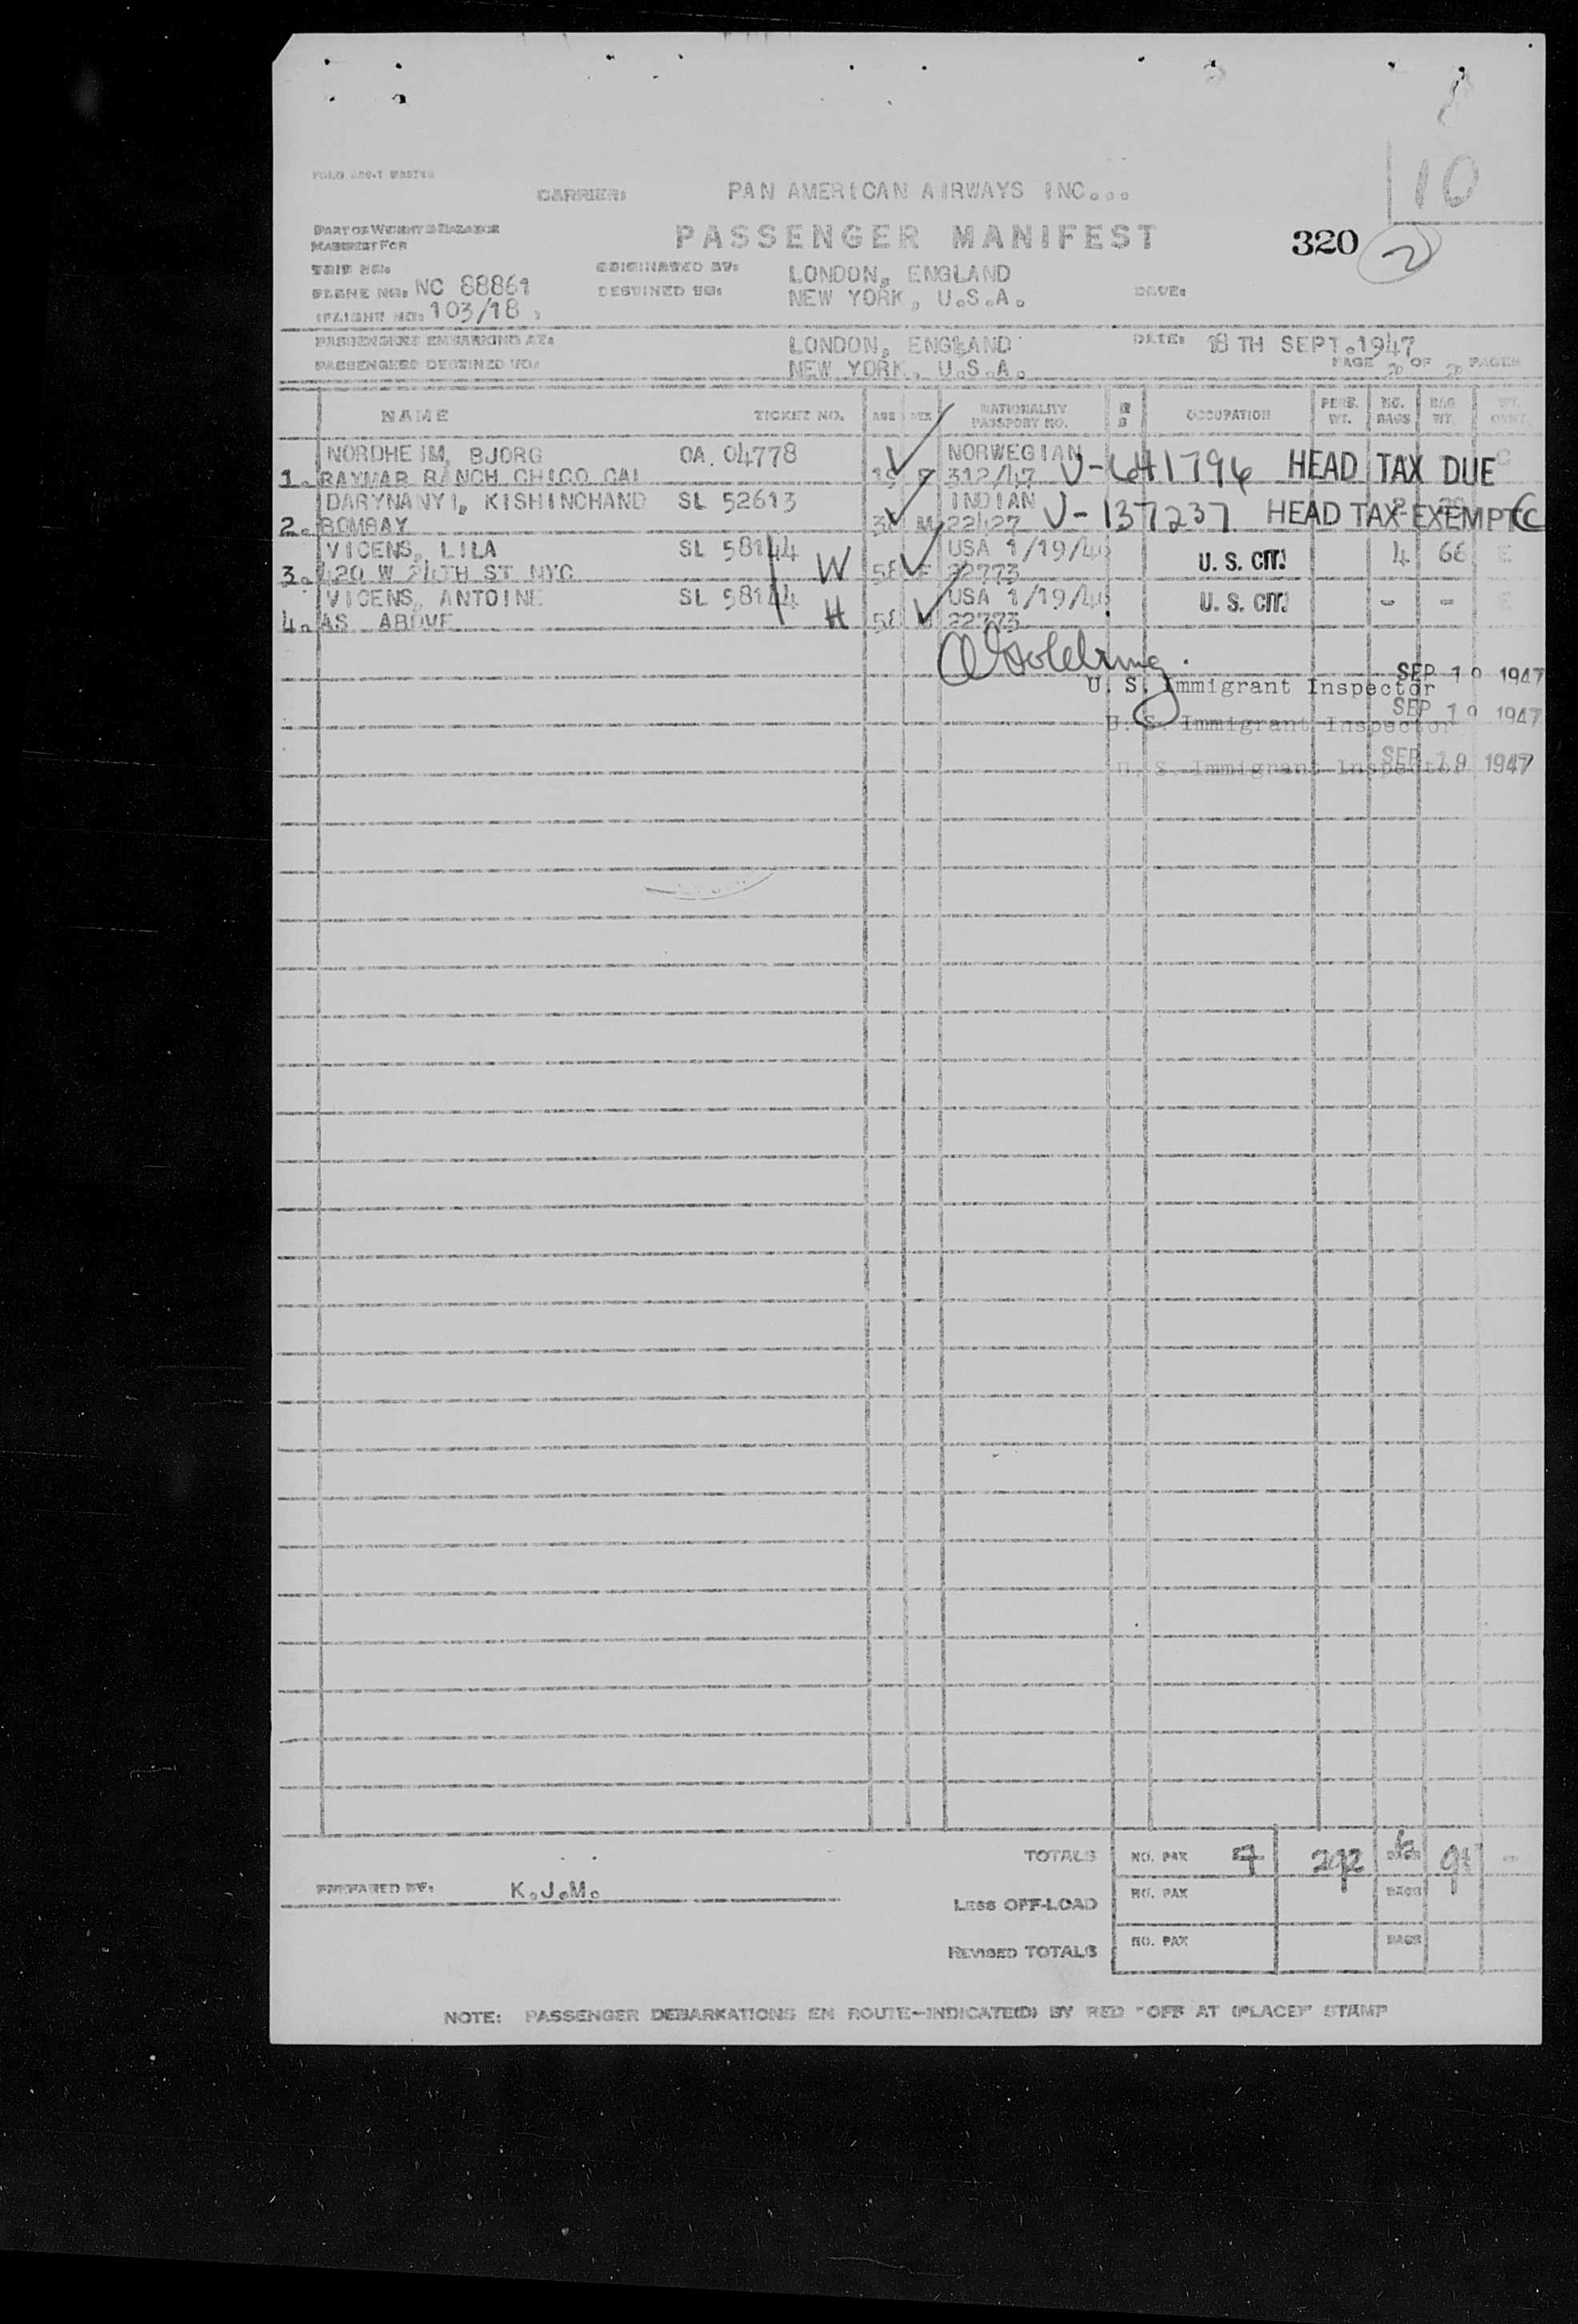 10
CARRIER: PAN AMERICAN AIRWAYS INC...
PART OF WEIGHT & BALANCE
MANIFEST FOR
PASSENGER MANIFEST 320 2
TRIP NO. ORIGINATED BY: LONDON, ENGLAND
PLANE NO. NC 88861 DESTINED TO: NEW YORK, U.S.A. DATE:
(FLIGHT NO. 103/18
PASSENGERS EMBARKING AT: LONDON, ENGLAND DATE: 18 TH SEPT.1947
PASSENGERS DESTINED TO: NEW YORK, U.S.A. PAGE 2 OF 2 PAGES
NAME TICKET NO. AGE SEX NATIONALITY PASSPORT NO. OCCUPATION PERS. WT. NO. BAGS BAG WT. WT. OVWT.
NORDHEIM, BJORG OA. 04778 NORWEGIAN
1. RAYMAR RANCH CHICO CAL 19 F 312/47 V-641796 HEAD TAX DUE
DARYNANYI, KISHINCHAND SL 52613 INDIAN
2. BOMBAY M 22427 V-137237 HEAD TAX EXEMPT C
VICENS, LILA SL 58144 USA 1/19/46 U. S. CIT. 4 66 E
3. 420 W 24TH ST NYC W 58 F 22773
VICENS, ANTOINE SL 58144 USA 1/19/46 U. S. CIT. - - E
4. AS ABOVE H 58 22773
SEP 19 1947
U. S. Immigrant Inspector
SEP 19 1947
U. S. Immigrant Inspector
SEP 19 1947
U. S. Immigrant Inspector
TOTALS NO. PAX 292 BAGS
PREPARED BY: K.J.M.
LESS OFF-LOAD NO. PAX BAGS
REVISED TOTALS NO. PAX BAGS
NOTE: PASSENGER DEBARKATIONS EN ROUTE-INDICATE(D) BY RED "OFF AT (PLACE)" STAMP